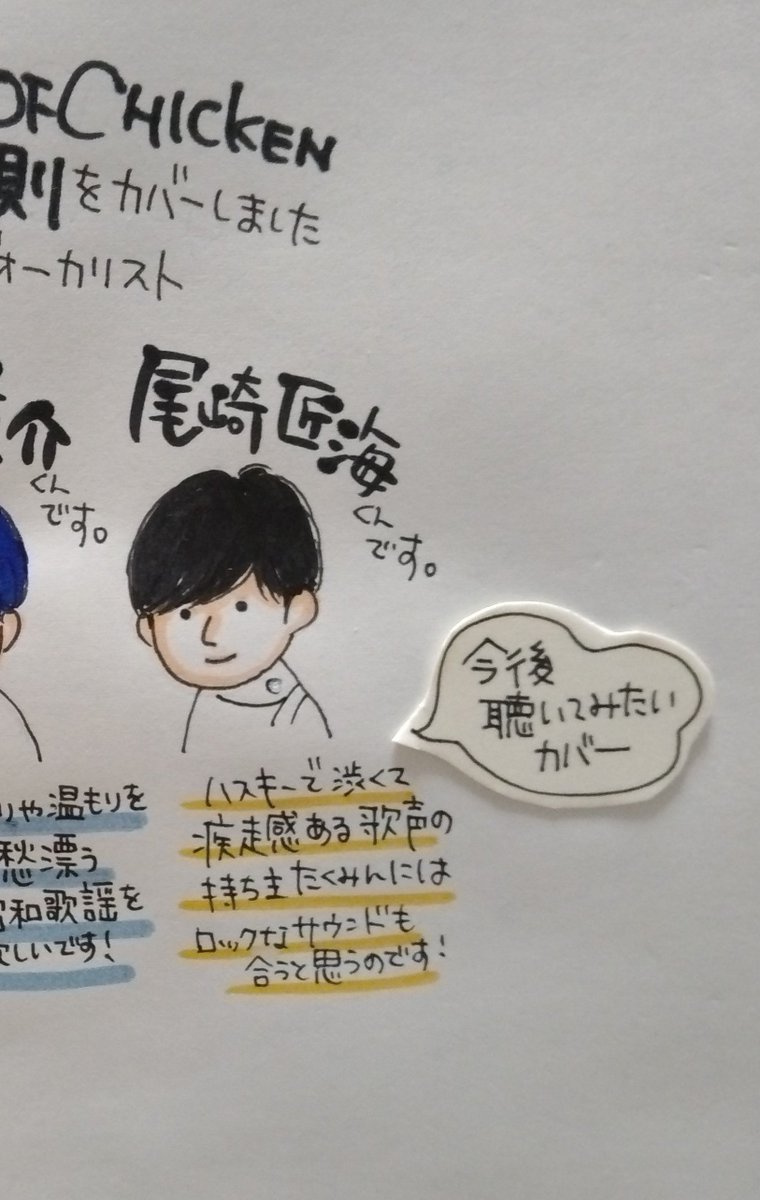 OF CHICKEN
則をカバーしました
ォーカリスト
介
くん
です。
尾崎匠海
くん
です。
今後
聴いてみたい
カバー
や温もりを
愁漂う
和歌謡を
しいです!
ハスキーで渋くて
疾走感ある歌声の
持ち主たくみんには
ロックなサウンドも
合うと思うのです!